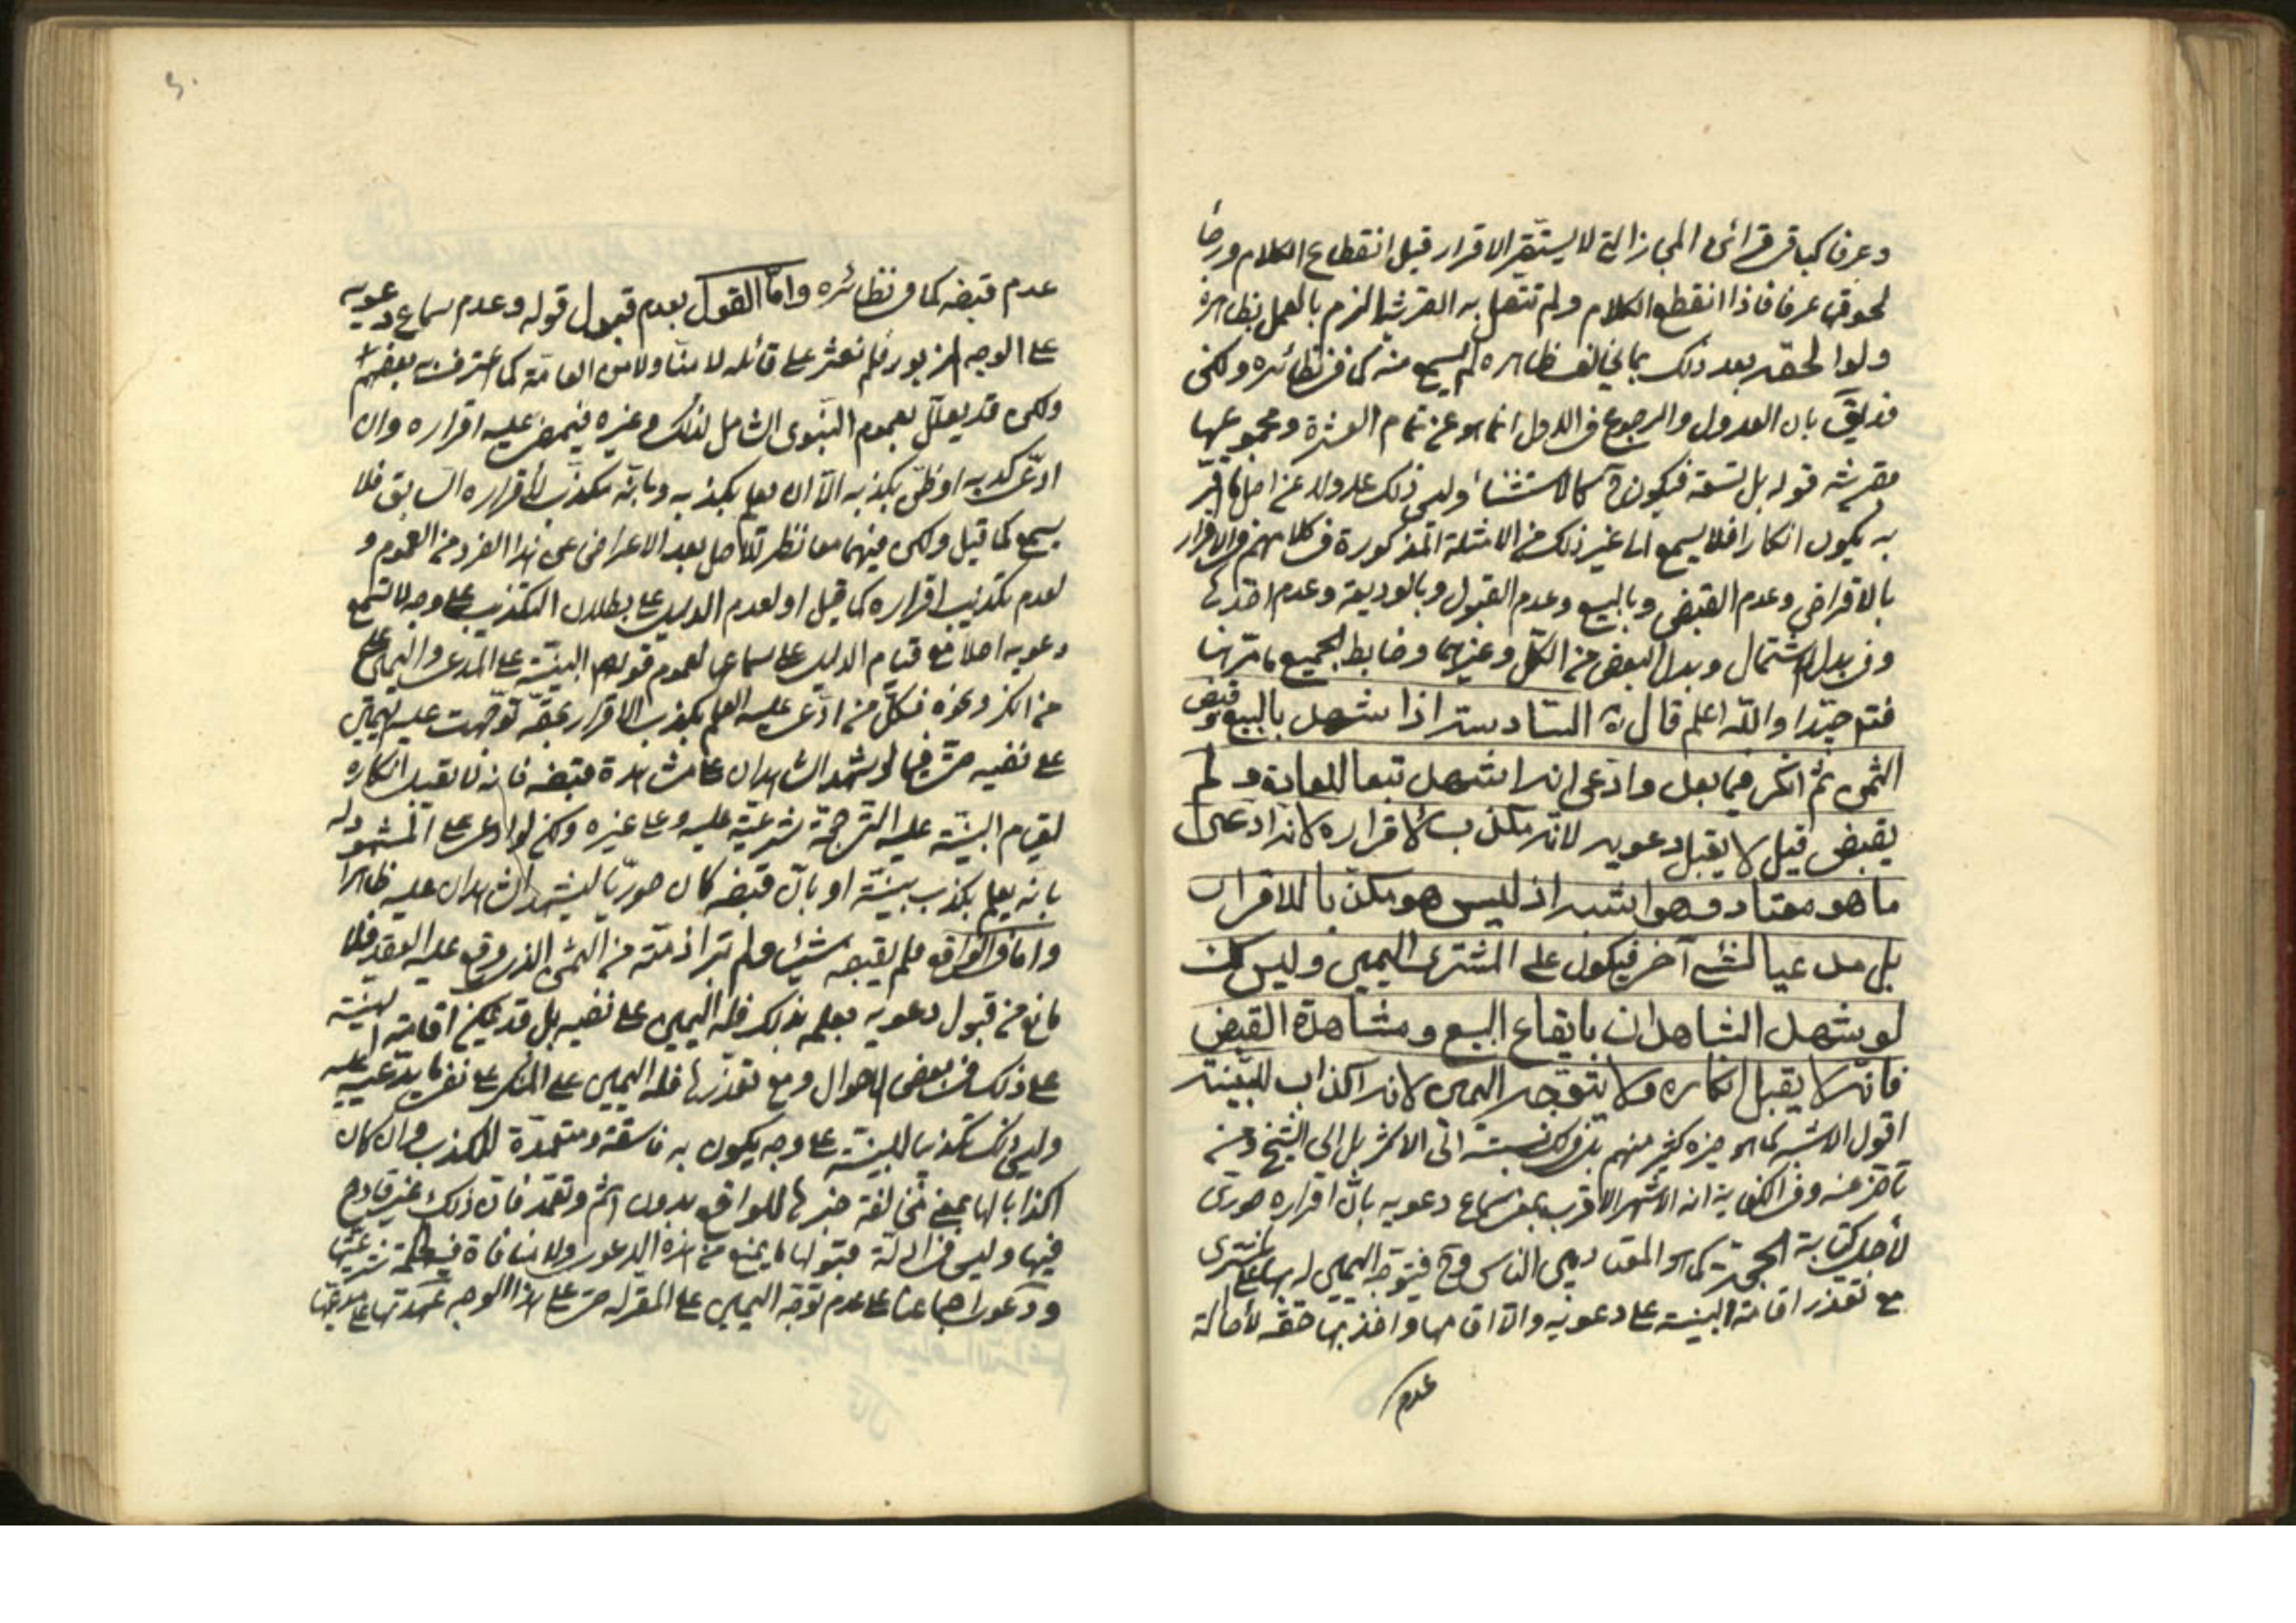 وعرفا كباقي قرائن المجاز التي لا يستقر الاقرار قبل انقطاع الكلام ورضا
لحوقها عرفا فاذا انقطع الكلام ولم تتصل به القرينة الزم بالعمل بظاهره
ولو الحقه بعد ذلك بما يخالف ظاهره لم يسمع منه كما في نظائره ولكن
قد يقال بان العدول والرجوع في الاول انما هو عن تمام العشرة ومجموعها
بقرينة قوله بل تسعة فيكون ح كالاستثناء وليس ذلك عدولا عن اصل ما اقر
به ليكون انكارا فلا يسمع اما غير ذلك من الامثلة المذكورة في كلامهم في الاقرار
بالاقراض وعدم القبض وبالبيع وعدم القبول وبالوديعة وعدم اخذها
وفي بدل الاشتمال وبدل البعض من الكل وغيرهما وضابط الجميع ما مر بها
فتدبر جيدا والله اعلم قال ره السادسة اذا شهد بالبيع وقبض
الثمن ثم انكر فيما بعد وادعى انه اشهد تبعا للعادة و لم
يقبض قيل لا يقبل دعويه لانه مكذب لاقراره لانه ادعى
ما هو معتاد وهو اشبه اذ ليس هو مكذبا للاقرار
بل مدعيا لشيء آخر فيكون على المشتري اليمين وليس كذلك
لو شهد الشاهدان بايقاع البيع ومشاهدة القبض
فانه لا يقبل انكاره ولا يتوجه اليمين لانه اكذاب للبينة
اقول الاشبه كما هو خيرة كثير منهم بل في ذلك نسبته الى الاكثر بل الى الشيخ ومن
تاخر عنه وفي الكفاية انه الاشهر الاقرب سماع دعويه بان اقراره صوري
لأجل كتابة الحجة كما هو المعتاد بين الناس وح فيتوجه اليمين له بها على المشتري
مع تعذر اقامة البينة على دعويه والا اقامها واخذ بها حقه لأصالة
عدم
عدم قبضه كما في نظائره واما القول بعدم قبول قوله وعدم سماع دعويه
على الوجه المزبور فلم نعثر على قائله لا منا ولا من العامة كما اعترف به بعضهم
ولكن قد يعلل بعموم النبوي الشامل لذلك وغيره فيمضى عليه اقراره وان
ادعى كذبه او ظن بكذبه الا ان يعلم بكذبه وبانه مكذب لأقراره السابق فلا
يسمع كما قيل ولكن فيهما معا نظر للاصل بعد الاعراض عن هذا الفرد من العموم و
لعدم تكذيب اقراره كما قيل او لعدم الدليل على بطلان التكذيب على وجه لا تسمع
دعويه اصلا مع قيام الدليل على سماعها لعموم قولهم البينة على المدعي واليمين على
من انكر ونحوه فكل من ادعى عليه العلم بكذب الاقرار بحقه توجهت عليه اليمين
على نفيه حتى فيما لو شهد الشاهدان على مشاهدة قبضه فانه لا يقبل انكاره
لقيام البينة عليه الترجمة شرعية عليه وعلى غيره ولكن لو ادعى على المشهود له
بانه يعلم بكذب بينته او بان قبضه كان صوريا ليشهد الشاهدان عليه ظاهرا
واما في الواقع فلم يقبضه شيئا ولم تبرأ ذمته من الثمن الذي وقع عليه العقد فلا
مانع من قبول دعويه بعلمه بذلك فله اليمين على نفيه بل قد يمكن اقامة البينة
على ذلك في بعض الاحوال ومع تعذرها فله اليمين على المنكر على نفي ما يدعيه عليه
وليس ذلك تكذيبا للبينة على وجه يكون به فاسقة ومتعمدة للكذب وان كان
اكذابا لها بمعنى مخالفة خبرها للواقع بدون اثم وتعمد فان ذلك غير قادح
فيها وليس في ادلة قبولها ما يمنع من هذه الدعوى ولا منافاة
ودعوى اجماعنا على عدم توجه اليمين على المقر له حتى على هذا الوجه عهدتها على مدعيها